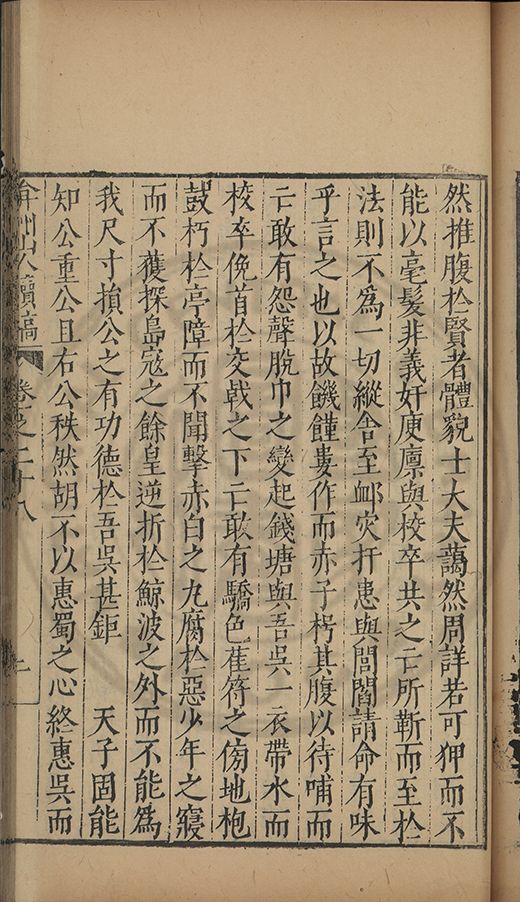 然推腹於賢者體貌士大夫藹然周詳若可狎而不
能以毫髮非義奸庾廩與校卒共之亡所靳而至於
法則不為一切縱舍至卹灾扞患與閭閻請命有味
乎言之也以故饑饉婁作而赤子枵其腹以待哺而
亡敢有怨聲脫巾之變起錢塘與吾吳一衣帶水而
校卒俛首於交戟之下亡敢有驕色萑苻之傍地枹
鼓朽於亭障而不聞擊赤白之丸腐於惡少年之寢
而不獲探島寇之餘皇逆折於鯨波之外而不能為
我尺寸損公之有功德於吾吳甚鉅　天子固能
知公重公且右公秩然胡不以惠蜀之心終惠吳而
弇州山人續稿 卷之二十八